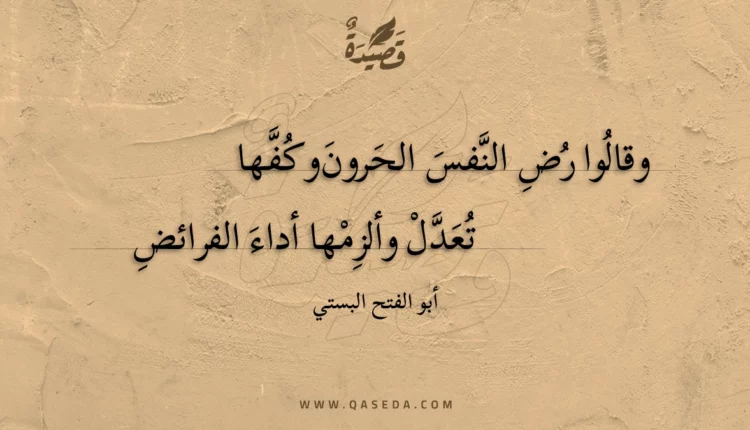 قَصِيْدَةٌ
وقالُوا رُضِ النَّفسَ الحَرونَ وكُفَّها
تُعَدَّلْ وألزِمْها أداءَ الفرائضِ
أبو الفتح البستي
WWW.QASEDA.COM